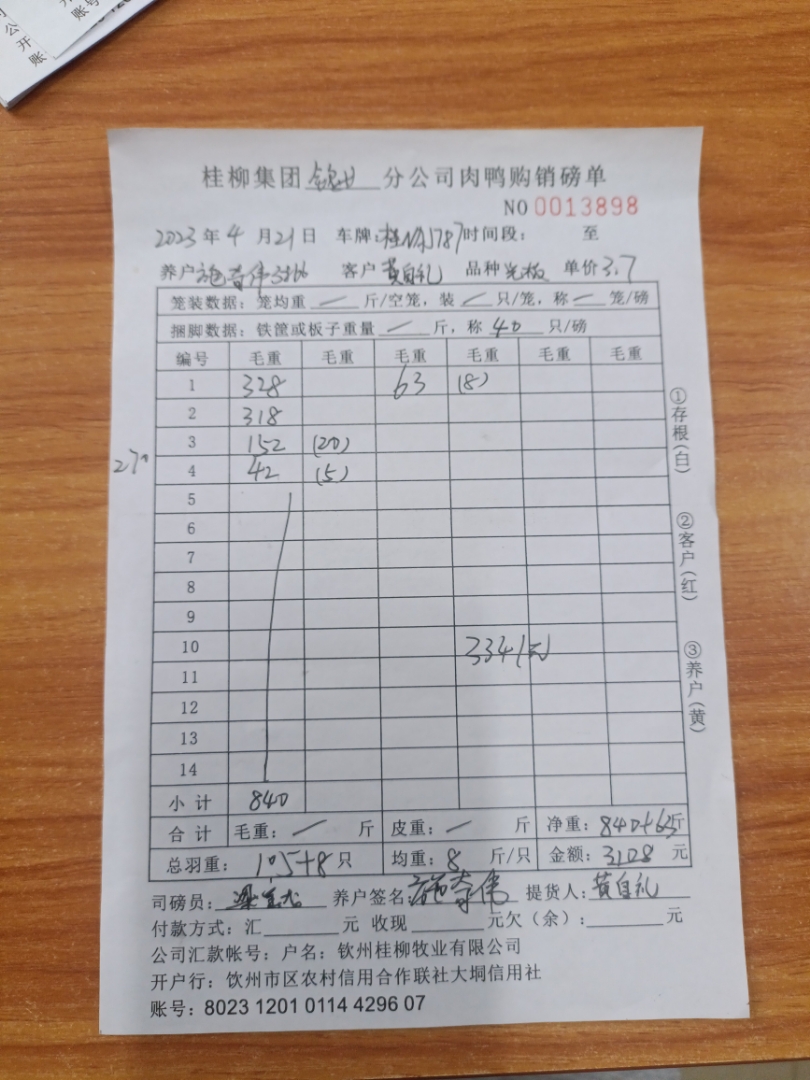 桂柳集团 钦州 分公司肉鸭购销磅单
NO 0013898
2023 年 4 月 21 日 车牌: 时间段: 至
养户 客户 黄自礼 品种 光板 单价 3.7
笼装数据: 笼均重 — 斤/空笼, 装 — 只/笼, 称 — 笼/磅
捆脚数据: 铁筐或板子重量 — 斤, 称 40 只/磅
编号 毛重 毛重 毛重 毛重 毛重 毛重
1 328 63 (8)
2 318
3 152 (20)
270
4 42 (5)
5
6
7
8
9
10 3341元
11
12
13
14
小计 840
合计 毛重: — 斤 皮重: — 斤 净重: 840+63斤
总羽重: 105+8 只 均重: 8 斤/只 金额: 3108 元
司磅员: 养户签名: 提货人: 黄自礼
付款方式: 汇 元 收现 元欠(余): 元
公司汇款帐号: 户名: 钦州桂柳牧业有限公司
开户行: 饮州市区农村信用合作联社大垌信用社
账号: 8023 1201 0114 4296 07
①存根(白)
②客户(红)
③养户(黄)
公
开
账
账号